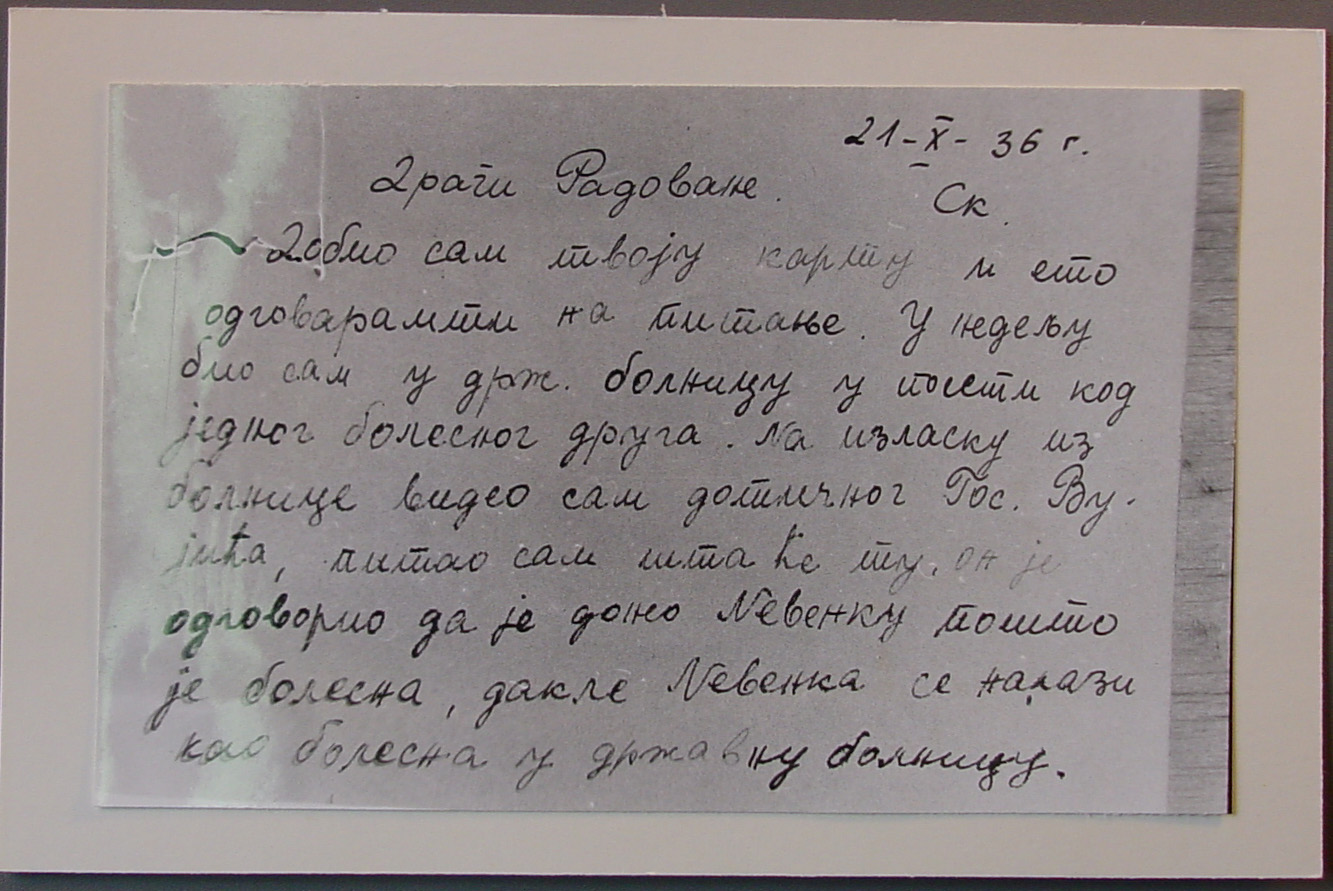 21-X-36 г.
Драги Радоване.
Ск.
Добио сам твоју карту и ето
одговарамти на питање. У недељу
био сам у држ. болницу у посети код
једног болесног друга. На изласку из
болнице видео сам дотичног Гос. Ву-
јића, питао сам шта ће ту, он је
одговорио да је дошо Невенку пошто
је болесна, дакле Невенка се налази
као болесна у државну болницу.